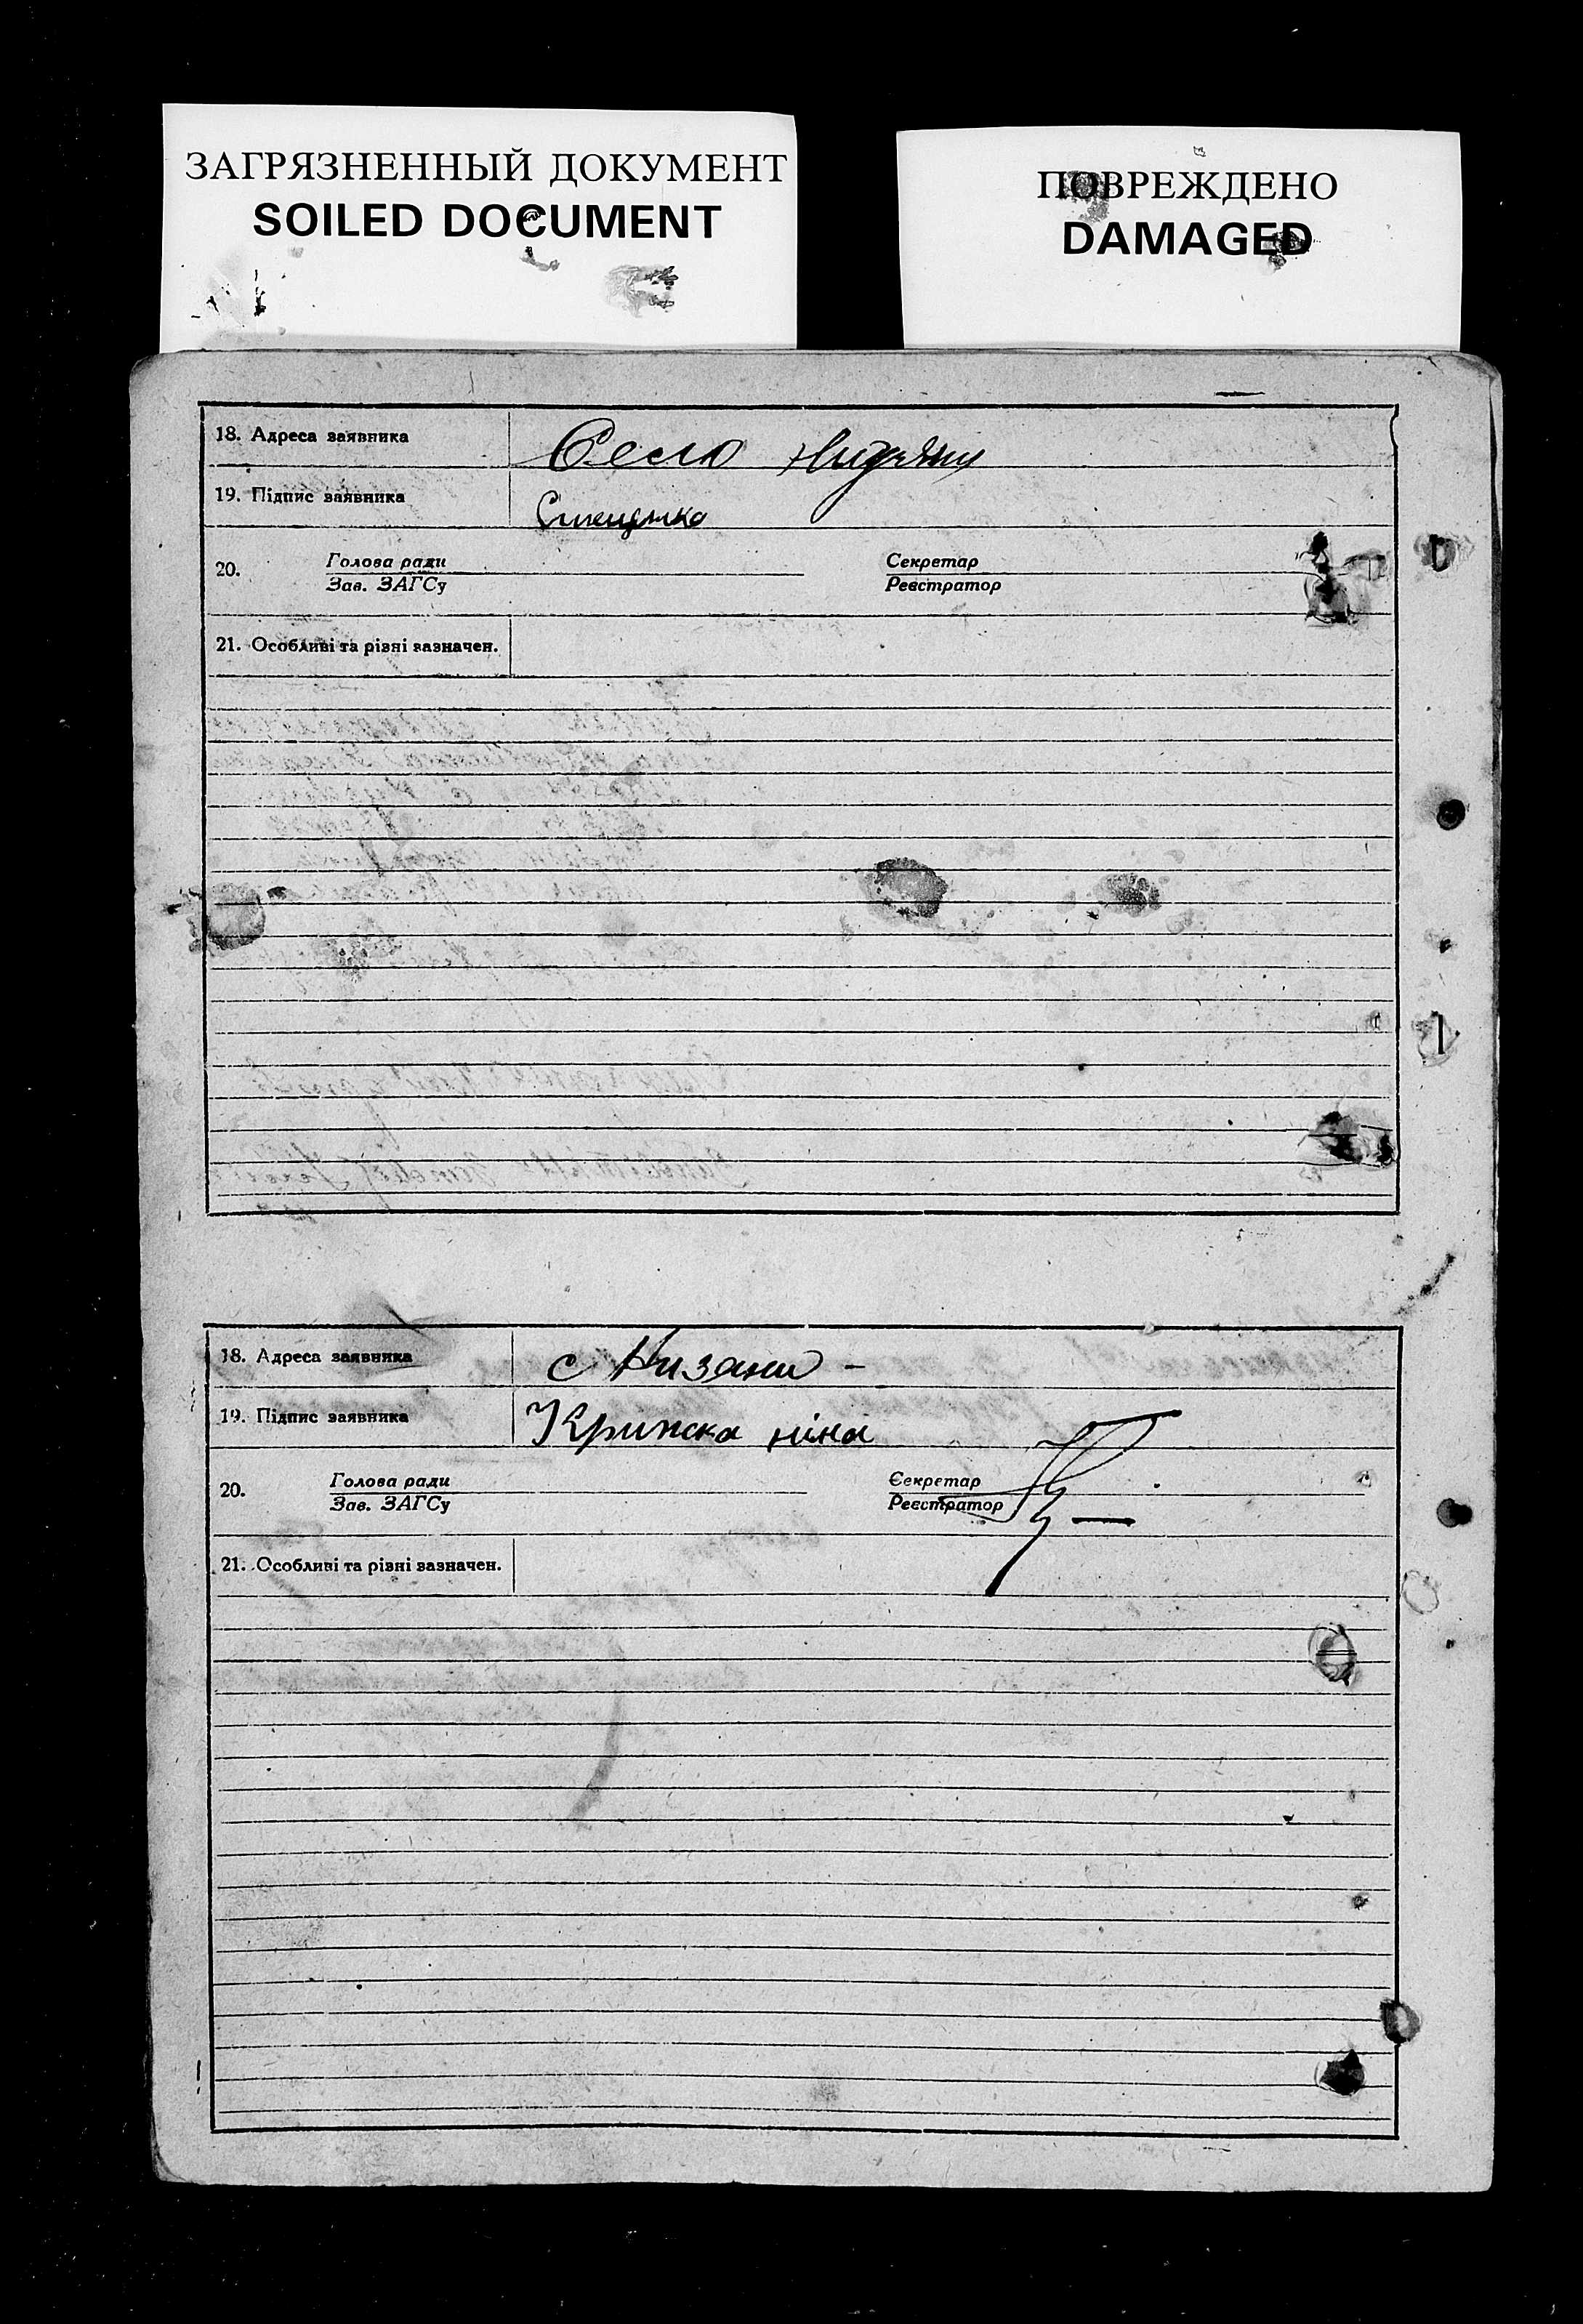 ЗАГРЯЗНЕННЫЙ ДОКУМЕНТ
SOILED DOCUMENT
ПОВРЕЖДЕНО
DAMAGED
18. Адреса заявника Село
19. Підпис заявника
20. Голова ради Секретар
Зав. ЗАГСу Реєстратор
21. Особливі та різні зазначен.
18. Адреса заявника с Низани -
19. Підпис заявника Крижска ніна
20. Голова ради Секретар
Зав. ЗАГСу Реєстратор
21. Особливі та різні зазначен.